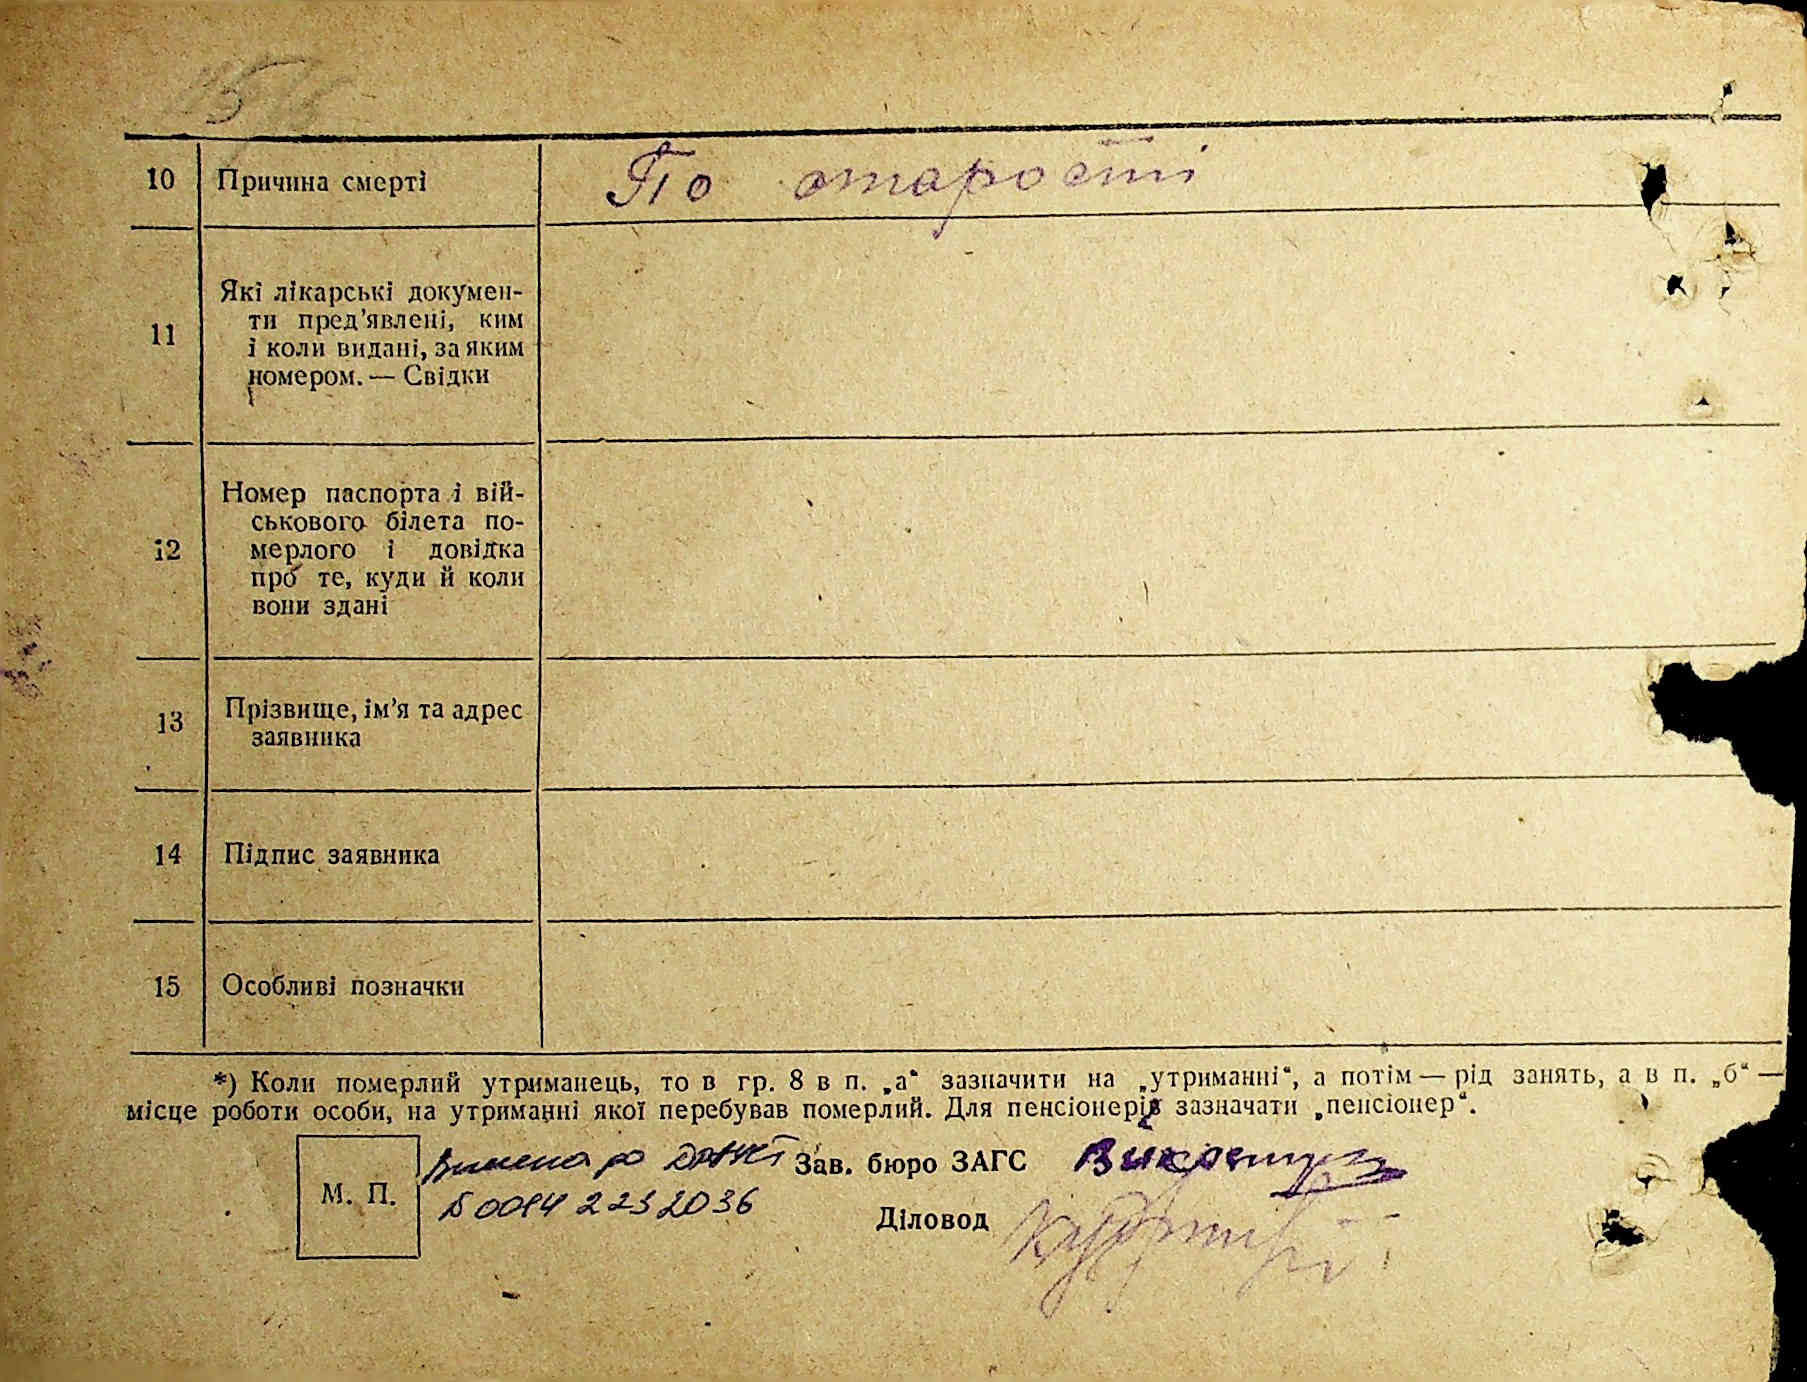 10 Причина смерті По старости
11 Які лікарські докумен-
ти пред'явлені, ким
і коли видані, за яким
номером. — Свідки
12 Номер паспорта і вій-
ськового білета по-
мерлого і довідка
про те, куди й коли
вони здані
13 Прізвище, ім'я та адрес
заявника
14 Підпис заявника
15 Особливі позначки
*) Коли померлий утриманець, то в гр. 8 в п. „а“ зазначити на „утриманні“, а потім — рід занять, а в п. „б“ —
місце роботи особи, на утриманні якої перебував померлий. Для пенсіонерів зазначати „пенсіонер“.
Зав. бюро ЗАГС
М. П. 00142232036
Діловод